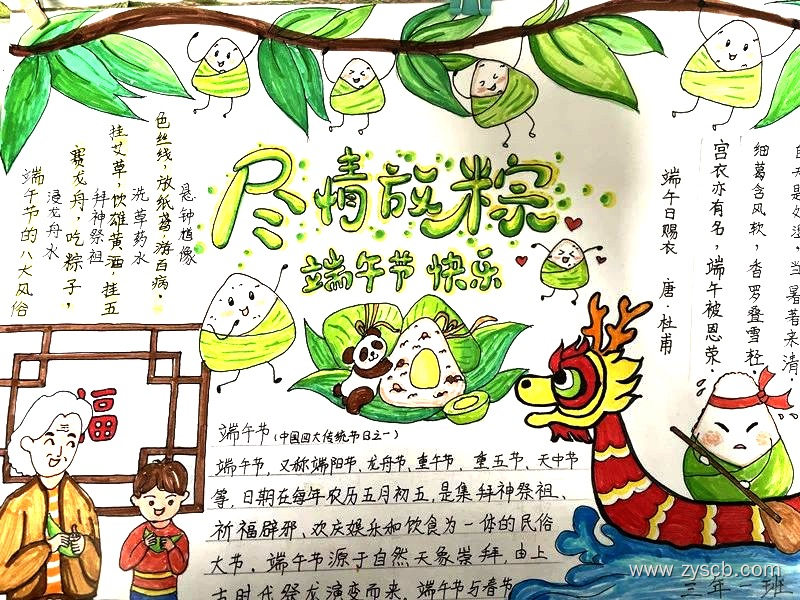 尽情放粽
端午节快乐
端午节的八大风俗
浸龙舟水
赛龙舟，吃粽子，
拜神祭祖
挂艾草，饮雄黄酒，挂五
洗草药水
色丝线，放纸鸢，游百病，
悬钟馗像
端午日赐衣 唐·杜甫
宫衣亦有名，端午被恩荣。
细葛含风软，香罗叠雪轻。
当暑著来清。
福
端午节（中国四大传统节日之一）
端午节，又称端阳节、龙舟节、重午节、重五节、天中节
等，日期在每年农历五月初五，是集拜神祭祖、
祈福辟邪、欢庆娱乐和饮食为一体的民俗
大节。端午节源于自然天象崇拜，由上
古时代祭龙演变而来。端午节与春节
www.zyscb.com
三年 班